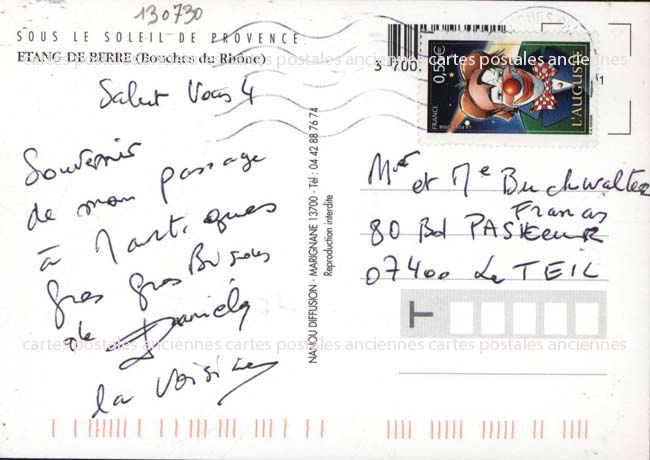 130730
SOUS LE SOLEIL DE PROVENCE
ETANG DE BERRE (Bouches du Rhône)
cartes postales anciennes cartes postales anciennes cartes postales anciennes
Salut Vous 4
Souvenir
de mon passage
à Martigues
gros gros Bisous
de Daniela
la voisine
NANOU DIFFUSION - MARIGNANE 13700 - Tél : 04 42 88 76 74
Reproduction interdite
3 700
0,55€
FRANCE
L'AUGUSTE
1
Mr et Me Buchwalter
Francis
80 Bd PASTEUR
07400 Le TEIL
T
cartes postales anciennes cartes postales anciennes cartes postales anciennes